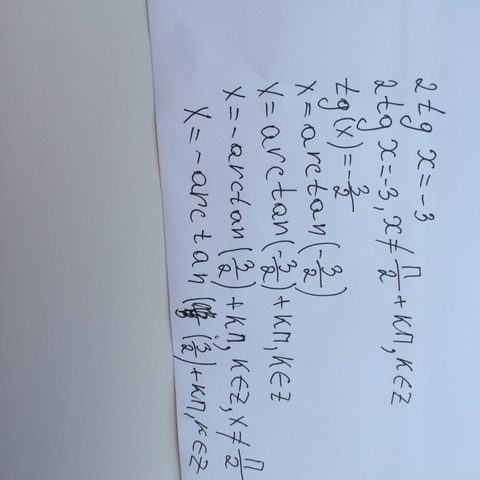 2tg x=-3
2tg x=-3, x≠П/2+кП, к∈z
tg(x)=-3/2
x=arctan(-3/2)
x=arctan(-3/2)+кП, к∈z
x=-arctan(3/2)+кП, к∈z, x≠П/2
x=-arctan(3/2)+кП, к∈z